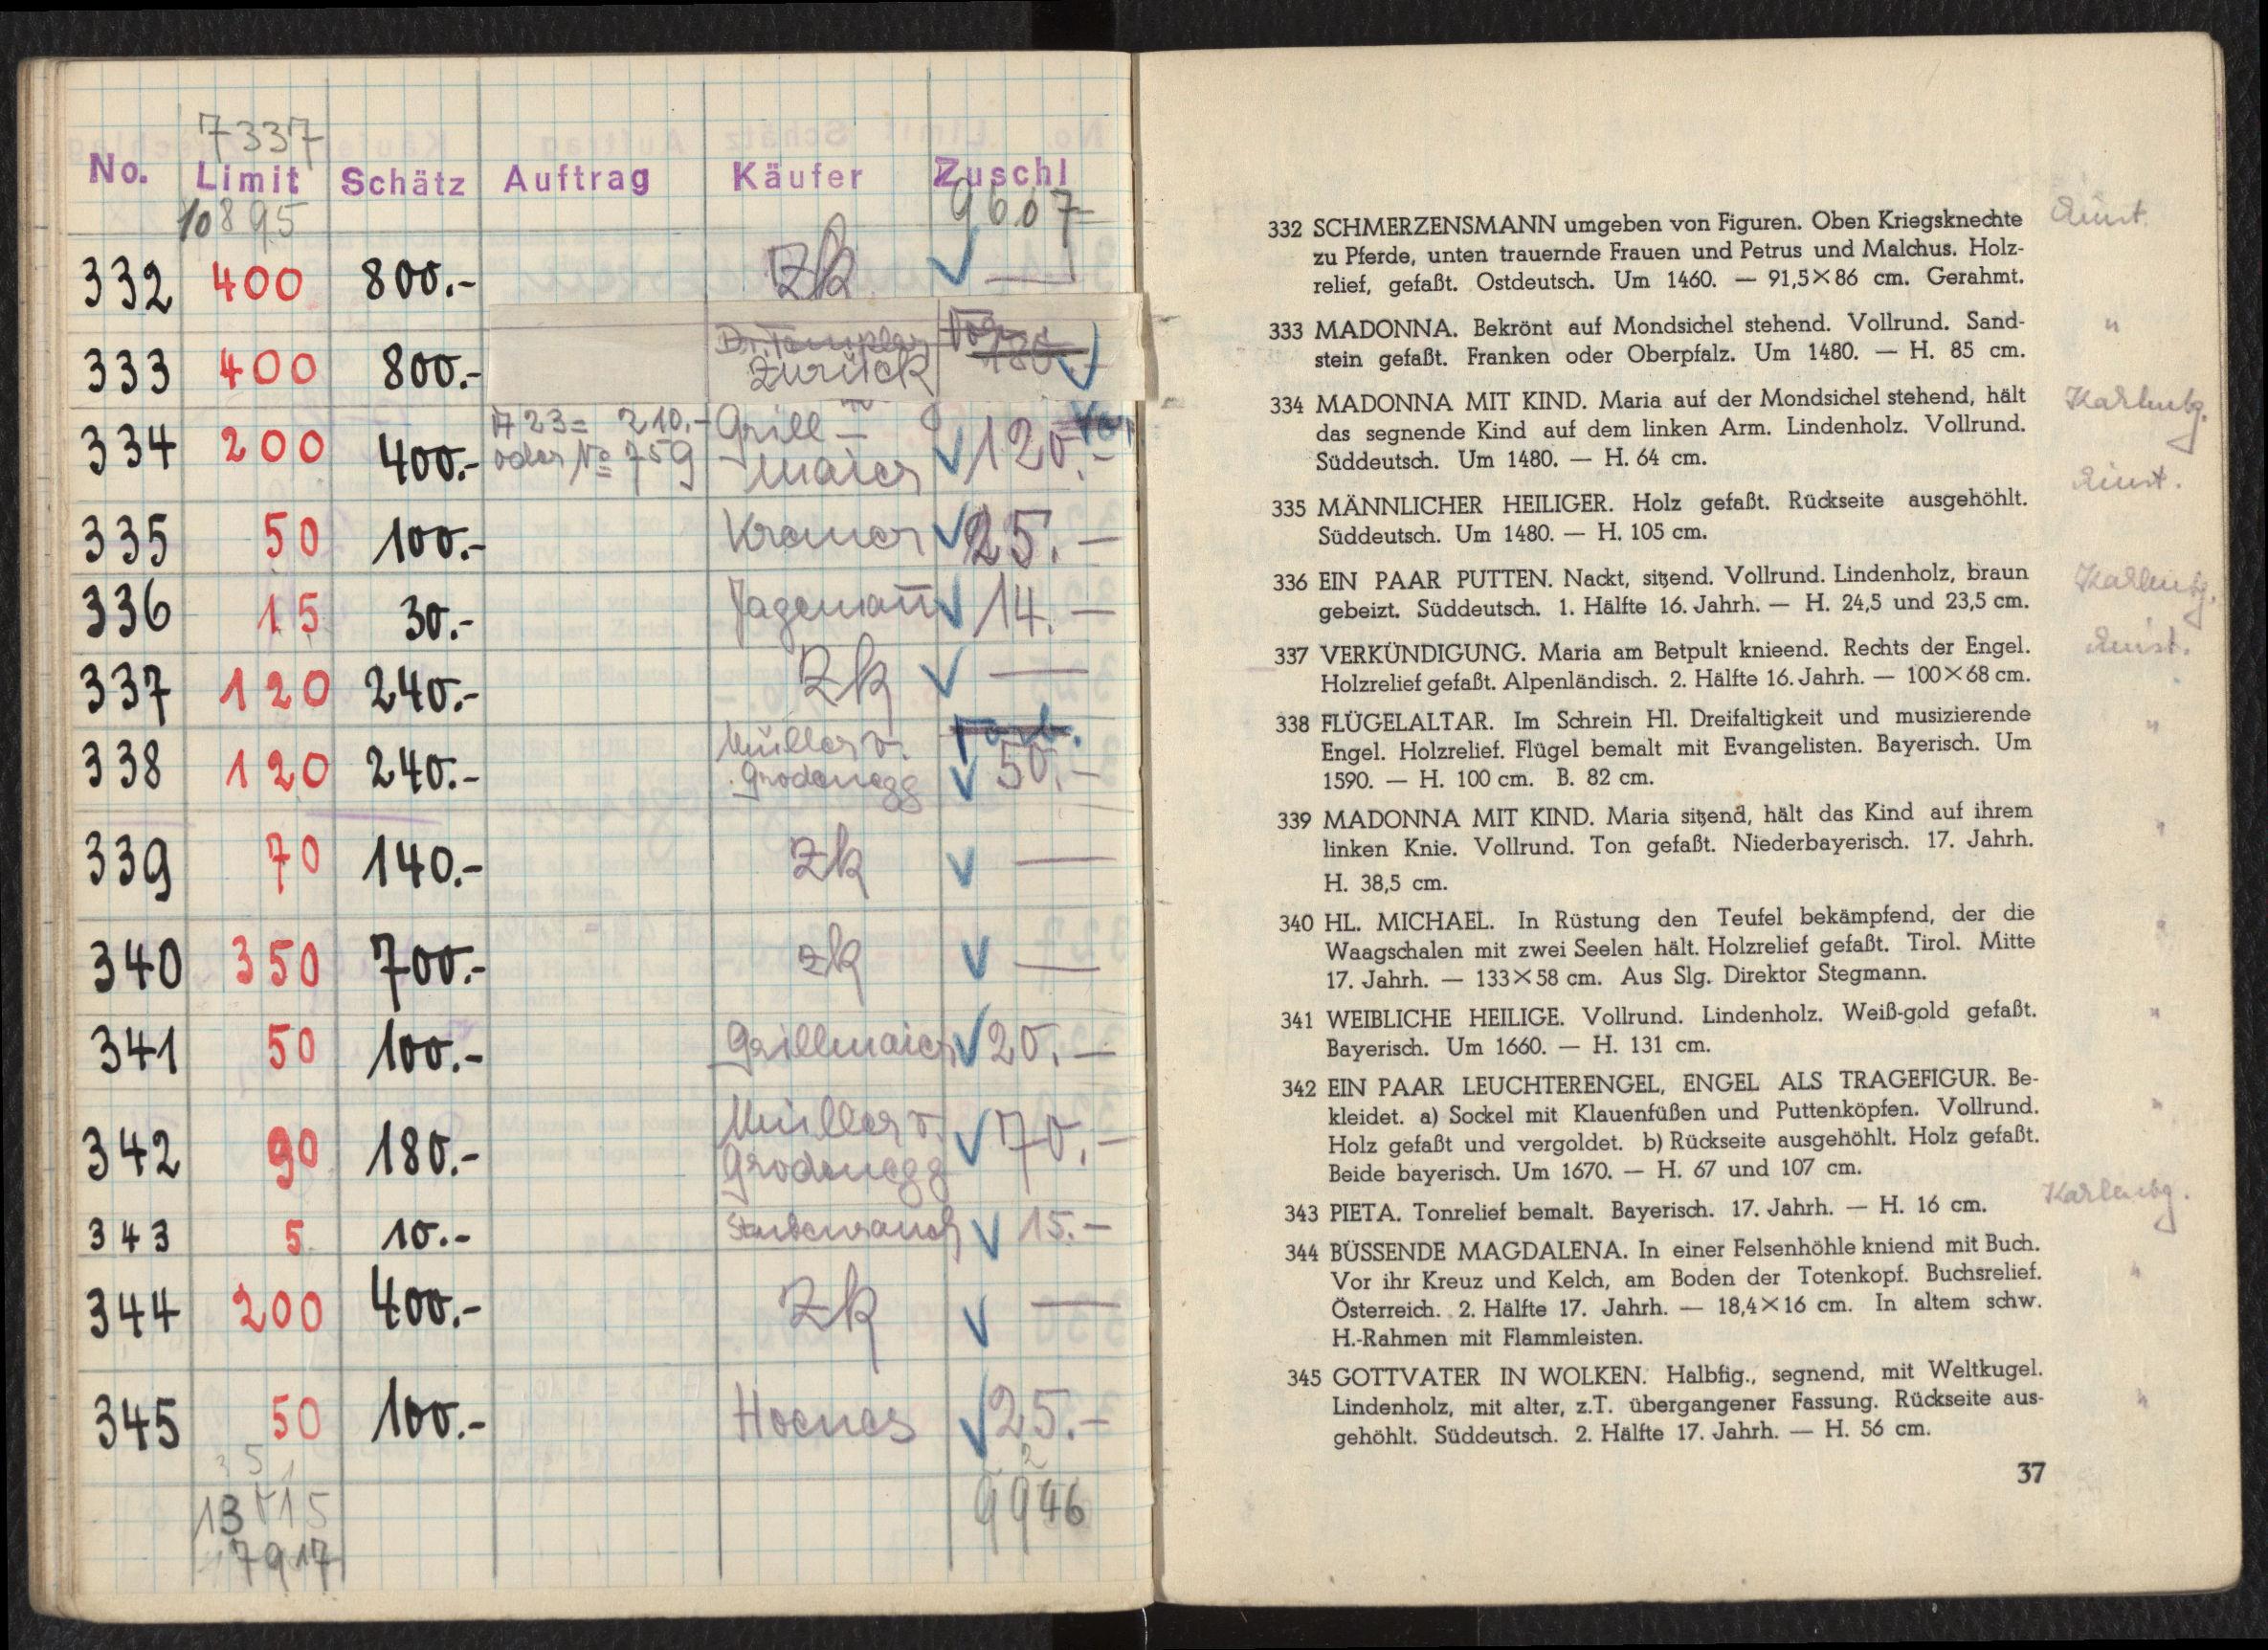 7337
No. Limit Schätz Auftrag Käufer Zuschl
10895 9607
332 400 800.- Zk —
333 400 800.- Zurück 180.-
334 200 400.- A 23 = 210.- Grill- 120.-
oder No 759 maier
335 50 100.- Kramer 25.-
336 15 30.- Jagemann 14.-
337 120 240.- Zk —
338 120 240.- Müller v. 50.-
Grodenegg
339 70 140.- Zk —
340 350 700.- Zk —
341 50 100.- Grillmaier 20.-
342 90 180.- Müller v. 70.-
Grodenegg
343 5 10.- Stubenrauch 15.-
344 200 400.- Zk —
345 50 100.- Hoenes 25.-
9946
7917
332 SCHMERZENSMANN umgeben von Figuren. Oben Kriegsknechte
zu Pferde, unten trauernde Frauen und Petrus und Malchus. Holz-
relief, gefaßt. Ostdeutsch. Um 1460. — 91,5×86 cm. Gerahmt.
333 MADONNA. Bekrönt auf Mondsichel stehend. Vollrund. Sand- "
stein gefaßt. Franken oder Oberpfalz. Um 1480. — H. 85 cm.
334 MADONNA MIT KIND. Maria auf der Mondsichel stehend, hält
das segnende Kind auf dem linken Arm. Lindenholz. Vollrund.
Süddeutsch. Um 1480. — H. 64 cm.
335 MÄNNLICHER HEILIGER. Holz gefaßt. Rückseite ausgehöhlt.
Süddeutsch. Um 1480. — H. 105 cm.
336 EIN PAAR PUTTEN. Nackt, sitzend. Vollrund. Lindenholz, braun
gebeizt. Süddeutsch. 1. Hälfte 16. Jahrh. — H. 24,5 und 23,5 cm.
337 VERKÜNDIGUNG. Maria am Betpult knieend. Rechts der Engel.
Holzrelief gefaßt. Alpenländisch. 2. Hälfte 16. Jahrh. — 100×68 cm.
338 FLÜGELALTAR. Im Schrein Hl. Dreifaltigkeit und musizierende "
Engel. Holzrelief. Flügel bemalt mit Evangelisten. Bayerisch. Um
1590. — H. 100 cm. B. 82 cm.
339 MADONNA MIT KIND. Maria sitzend, hält das Kind auf ihrem "
linken Knie. Vollrund. Ton gefaßt. Niederbayerisch. 17. Jahrh.
H. 38,5 cm.
340 HL. MICHAEL. In Rüstung den Teufel bekämpfend, der die "
Waagschalen mit zwei Seelen hält. Holzrelief gefaßt. Tirol. Mitte
17. Jahrh. — 133×58 cm. Aus Slg. Direktor Stegmann.
341 WEIBLICHE HEILIGE. Vollrund. Lindenholz. Weiß-gold gefaßt. "
Bayerisch. Um 1660. — H. 131 cm.
342 EIN PAAR LEUCHTERENGEL, ENGEL ALS TRAGEFIGUR. Be- "
kleidet. a) Sockel mit Klauenfüßen und Puttenköpfen. Vollrund.
Holz gefaßt und vergoldet. b) Rückseite ausgehöhlt. Holz gefaßt.
Beide bayerisch. Um 1670. — H. 67 und 107 cm.
343 PIETA. Tonrelief bemalt. Bayerisch. 17. Jahrh. — H. 16 cm.
344 BÜSSENDE MAGDALENA. In einer Felsenhöhle kniend mit Buch. "
Vor ihr Kreuz und Kelch, am Boden der Totenkopf. Buchsrelief.
Österreich. 2. Hälfte 17. Jahrh. — 18,4×16 cm. In altem schw.
H.-Rahmen mit Flammleisten.
345 GOTTVATER IN WOLKEN. Halbfig., segnend, mit Weltkugel. "
Lindenholz, mit alter, z.T. übergangener Fassung. Rückseite aus-
gehöhlt. Süddeutsch. 2. Hälfte 17. Jahrh. — H. 56 cm.
37